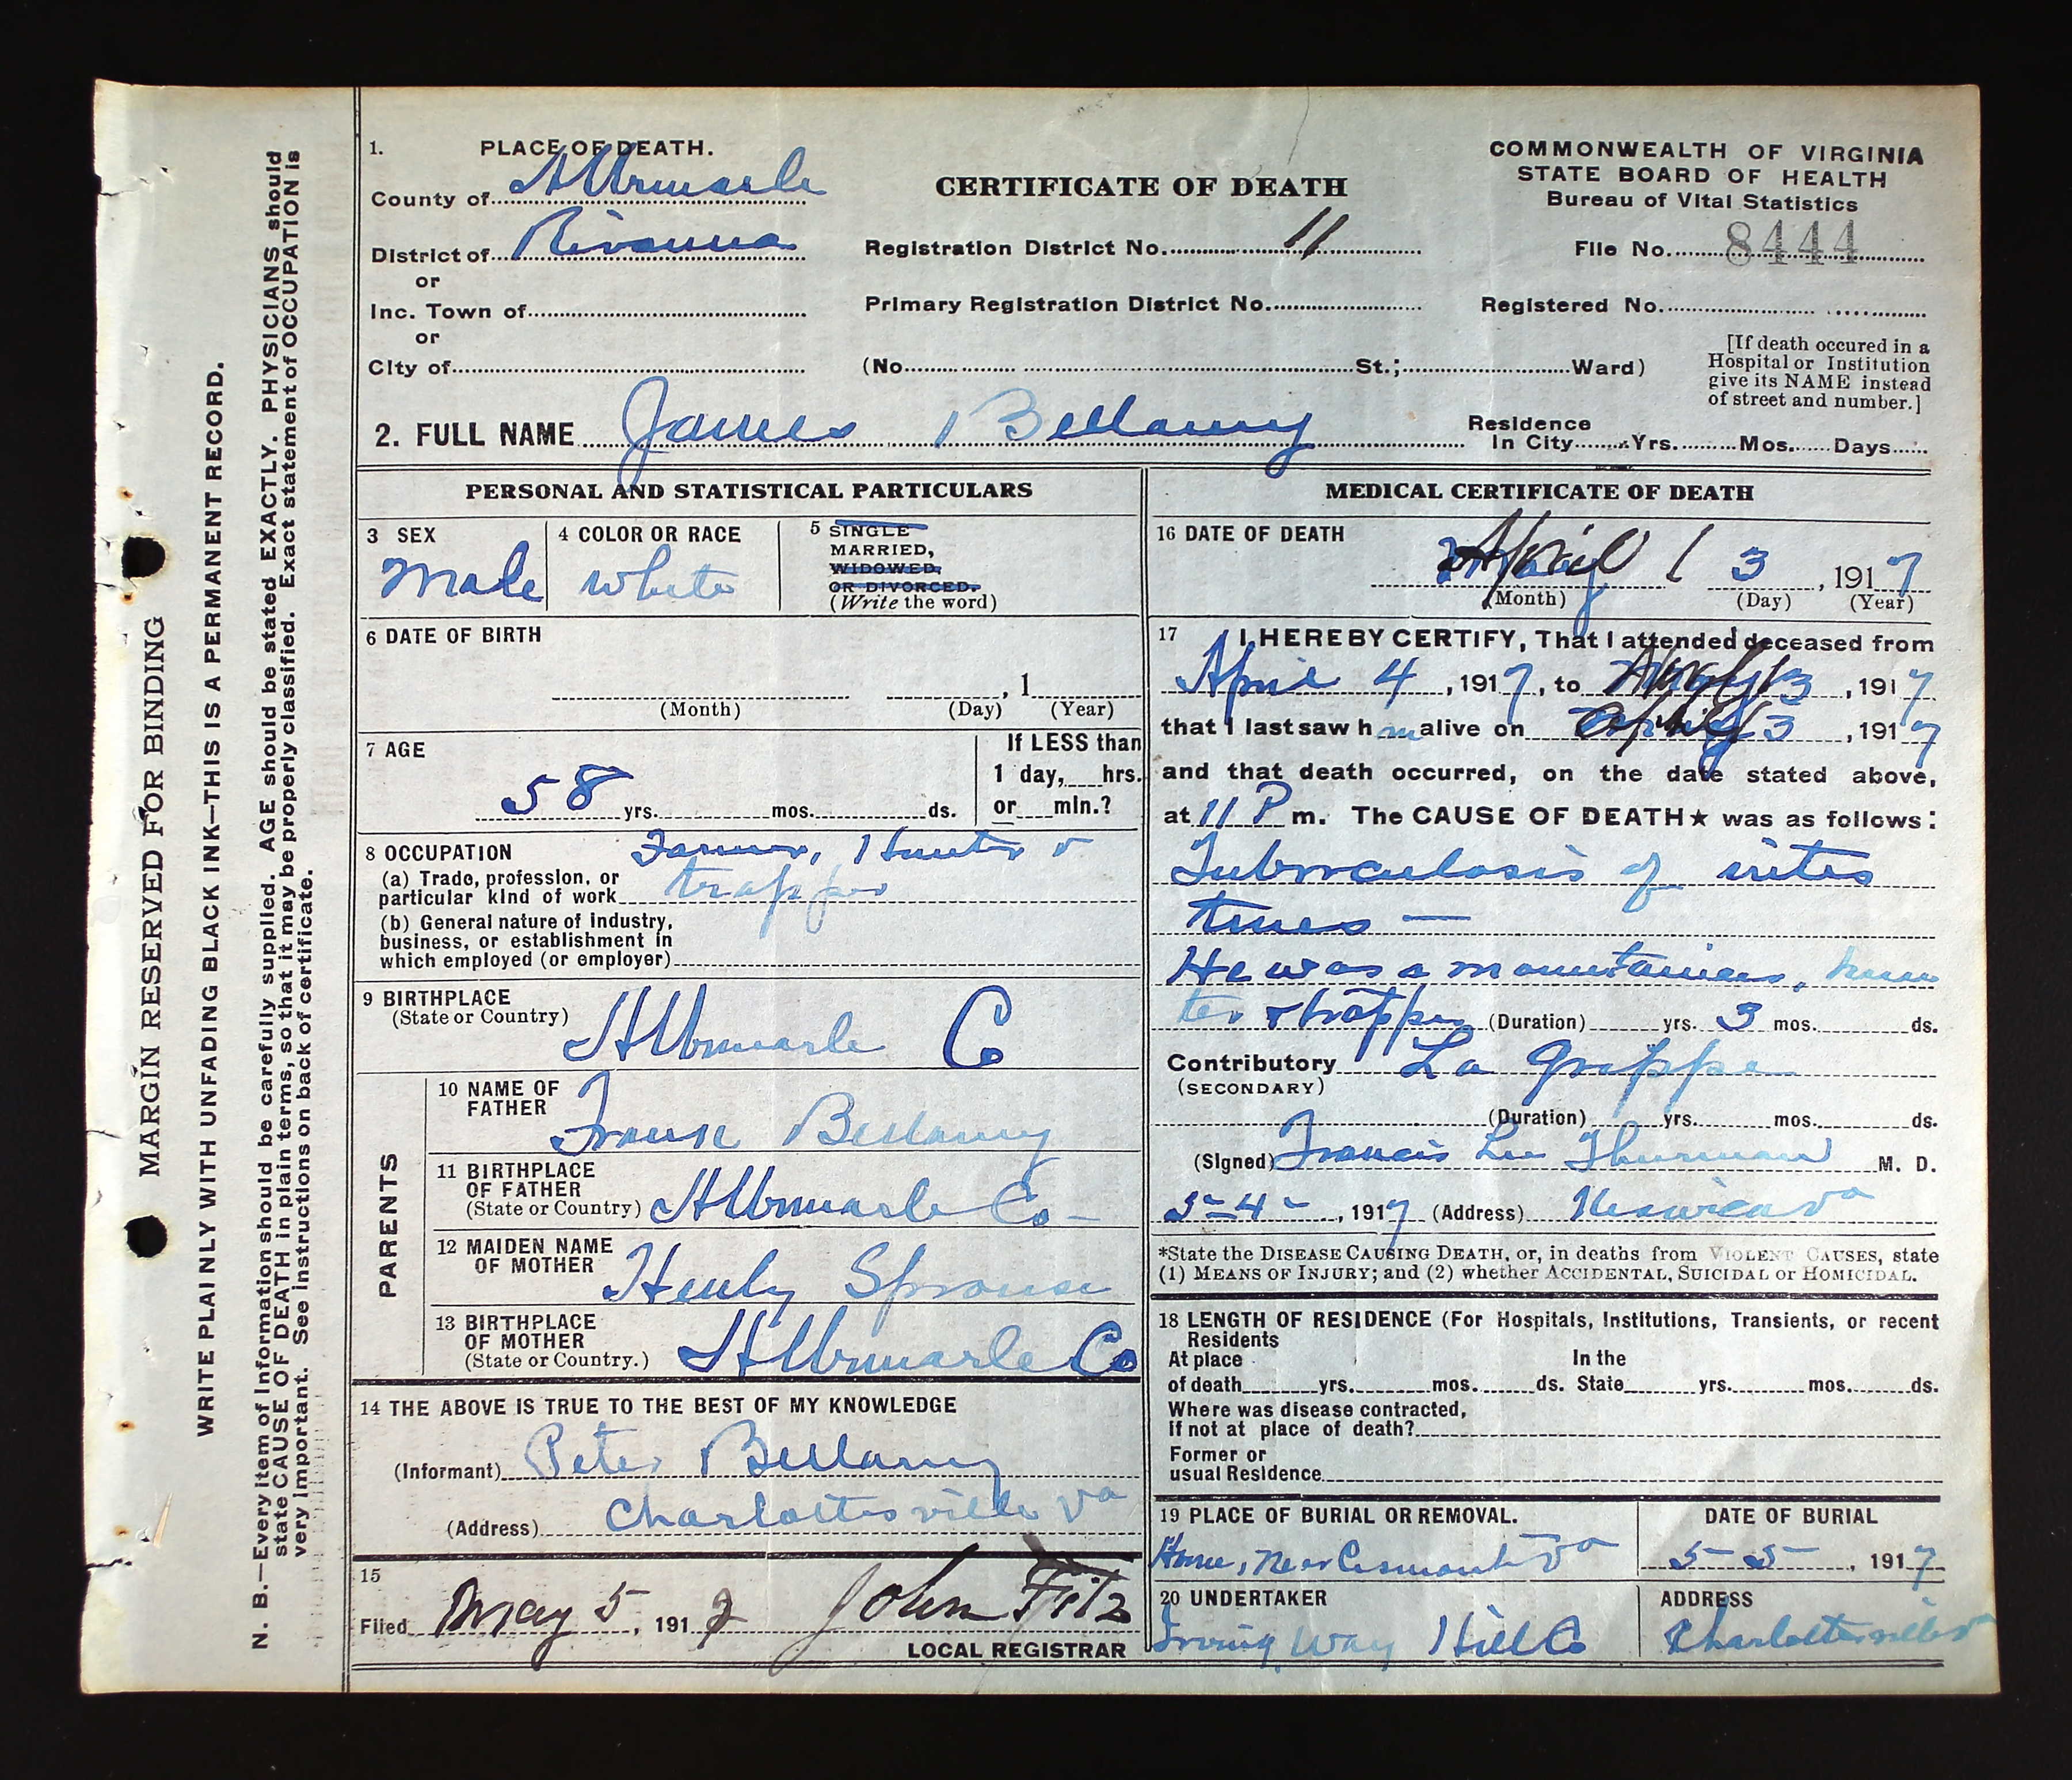 MARGIN RESERVED FOR BINDING
WRITE PLAINLY WITH UNFADING BLACK INK—THIS IS A PERMANENT RECORD.
N. B.—Every item of information should be carefully supplied. AGE should be stated EXACTLY. PHYSICIANS should
state CAUSE OF DEATH in plain terms, so that it may be properly classified. Exact statement of OCCUPATION is
very important. See instructions on back of certificate.
1. PLACE OF DEATH.
County of Albemarle
District of Rivanna
or
Inc. Town of
or
City of
CERTIFICATE OF DEATH
Registration District No. 11
Primary Registration District No.
(No. St.; Ward)
COMMONWEALTH OF VIRGINIA
STATE BOARD OF HEALTH
Bureau of Vital Statistics
File No. 8444
Registered No.
[If death occured in a
Hospital or Institution
give its NAME instead
of street and number.]
2. FULL NAME James Bellamy
Residence
In City Yrs. Mos. Days
PERSONAL AND STATISTICAL PARTICULARS
3 SEX
Male
4 COLOR OR RACE
White
5 SINGLE
MARRIED,
WIDOWED,
OR DIVORCED.
(Write the word)
6 DATE OF BIRTH
, 1
(Month) (Day) (Year)
7 AGE
58 yrs. mos. ds.
If LESS than
1 day, hrs.
or min.?
8 OCCUPATION Farmer, Hunter &
(a) Trade, profession, or
particular kind of work trapper
(b) General nature of industry,
business, or establishment in
which employed (or employer)
9 BIRTHPLACE
(State or Country)
Albemarle Co
PARENTS
10 NAME OF
FATHER
Frank Bellamy
11 BIRTHPLACE
OF FATHER
(State or Country) Albemarle Co-
12 MAIDEN NAME
OF MOTHER
Henly Sprouse
13 BIRTHPLACE
OF MOTHER
(State or Country.) Albemarle Co
14 THE ABOVE IS TRUE TO THE BEST OF MY KNOWLEDGE
(Informant) Peter Bellamy
(Address) Charlottesville Va
15
Filed May 5, 1917 John Fitz
LOCAL REGISTRAR
MEDICAL CERTIFICATE OF DEATH
16 DATE OF DEATH
April 3, 1917
(Month) (Day) (Year)
17 I HEREBY CERTIFY, That I attended deceased from
April 4, 1917, to 3, 1917
that I last saw him alive on 3, 1917
and that death occurred, on the date stated above,
at 11 P m. The CAUSE OF DEATH★ was as follows:
Tuberculosis of intes
tines —
He was a mountaineer, hun
ter & trapper (Duration) yrs. 3 mos. ds.
Contributory La Grippe
(SECONDARY)
(Duration) yrs. mos. ds.
(Signed) Francis Lee Thurman M. D.
5-4-, 1917 (Address) Keswick Va
*State the DISEASE CAUSING DEATH, or, in deaths from VIOLENT CAUSES, state
(1) MEANS OF INJURY; and (2) whether ACCIDENTAL, SUICIDAL or HOMICIDAL.
18 LENGTH OF RESIDENCE (For Hospitals, Institutions, Transients, or recent
Residents
At place In the
of death yrs. mos. ds. State yrs. mos. ds.
Where was disease contracted,
If not at place of death?
Former or
usual Residence
19 PLACE OF BURIAL OR REMOVAL.
Home, near Cismont Va
DATE OF BURIAL
5-5-, 1917
20 UNDERTAKER
Irving Way Hill Co
ADDRESS
Charlottesville Va